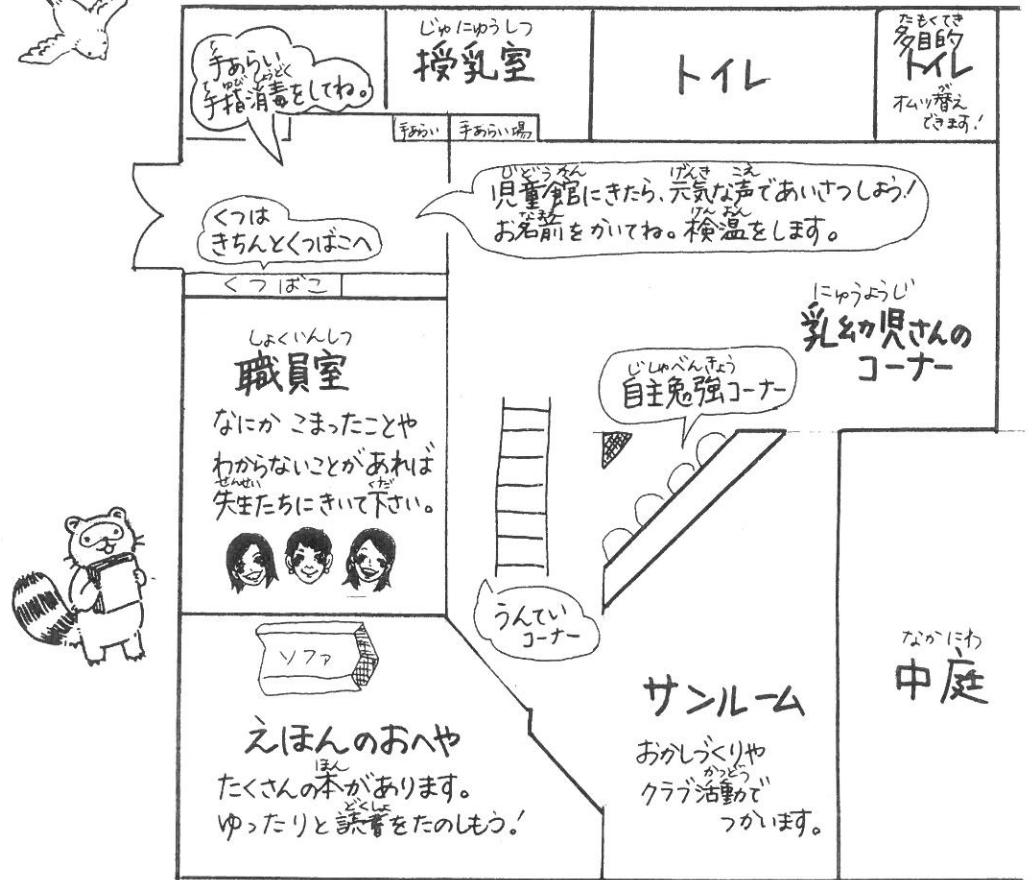 手あらい
手指消毒をしてね。
じゅにゅうしつ
授乳室
トイレ
たもくてき
多目的
トイレ
オムツ替え
できます!
手あらい
手あらい場
じどうかん げんき こえ
児童館にきたら、元気な声であいさつしよう!
なまえ けんおん
お名前をかいてね。検温をします。
くつは
きちんとくつばこへ
くつばこ
にゅうようじ
乳幼児さんの
コーナー
しょくいんしつ
職員室
なにか こまったことや
わからないことがあれば
せんせい くだ
先生たちにきいて下さい。
じしゅべんきょう
自主勉強コーナー
うんてい
コーナー
ソファ
えほんのおへや
ほん
たくさんの本があります。
どくしょ
ゆったりと読書をたのしもう!
サンルーム
おかしづくりや
かつどう
クラブ活動で
つかいます。
なかにわ
中庭